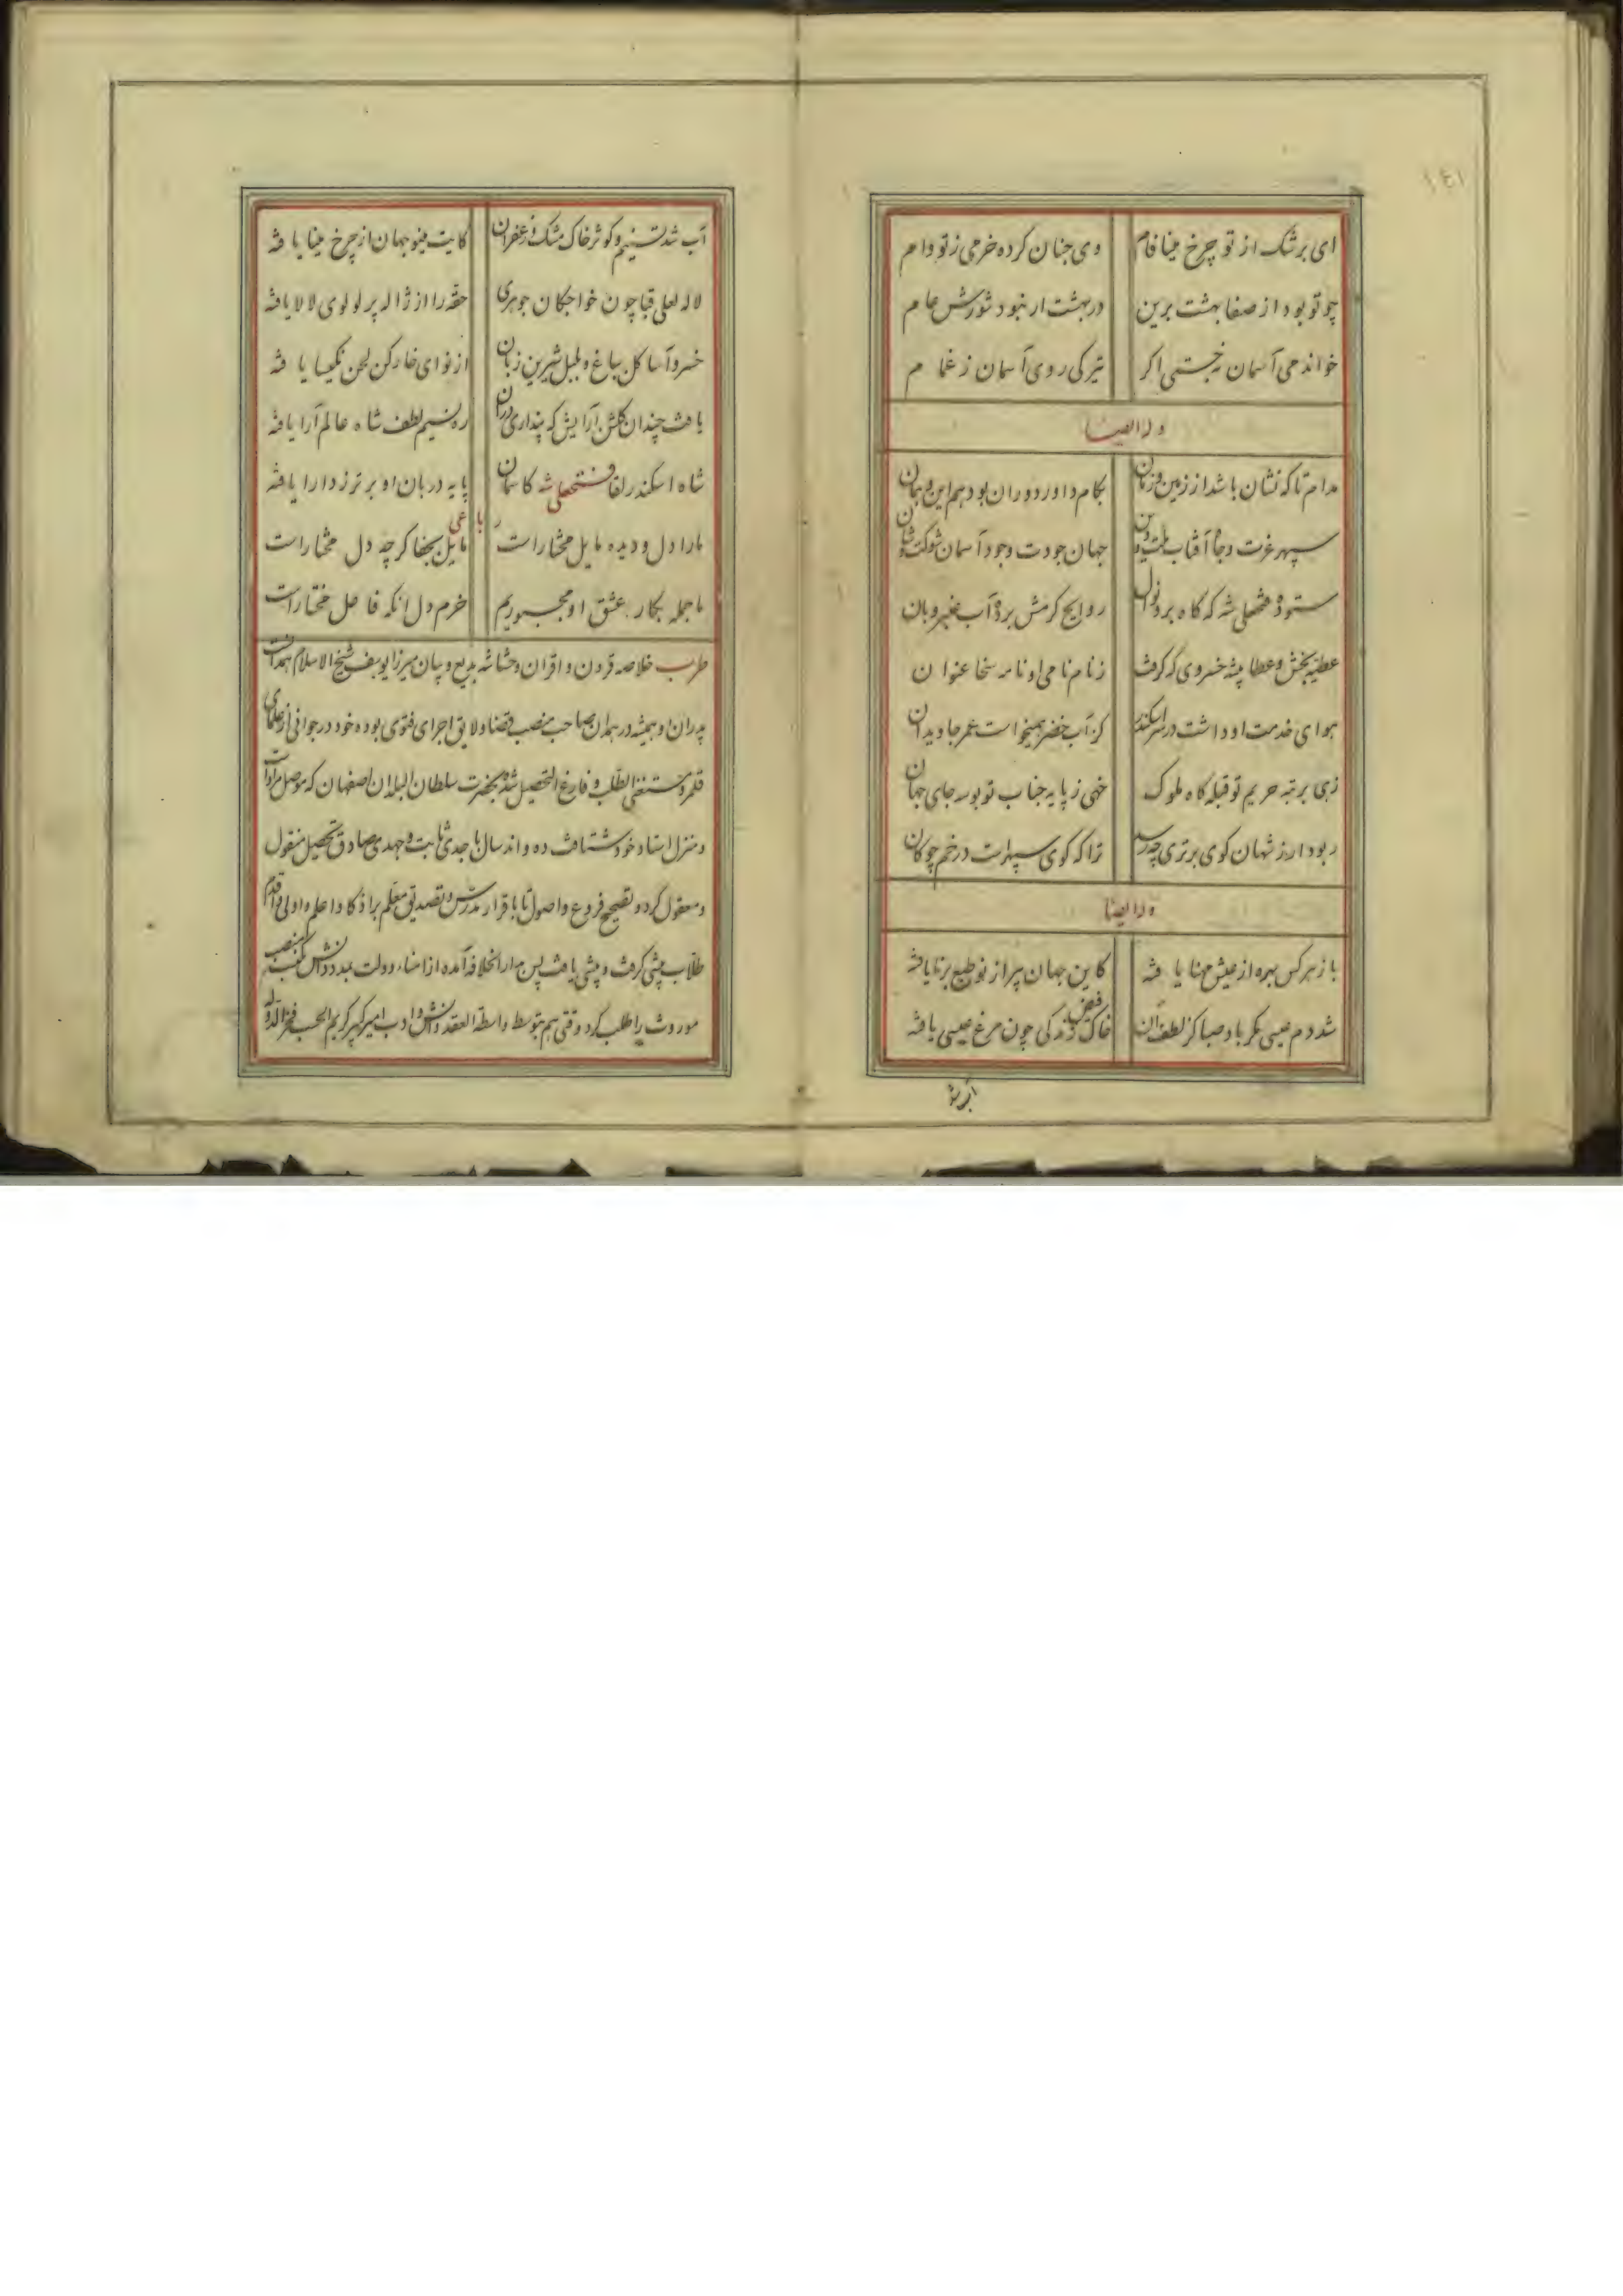 ۱۴۱
ای برشک از تو چرخ مینا فام وی جنان کرده خرمی ز تو وام
چو تو بود از صفا بهشت برین در بهشت ار نبود شورش عام
خواندمی آسمان نجستی اکر تیرکی روی آسمان ز غمام
وله ایضا
مدام تا که نشان باشد از زمین و زمان بکام داور دوران بود هم این و همان
سپهر عزت و جاه آفتاب ملت و دین جهان جودت وجود آسمان شوکت و شان
ستوده فتحعلی شه که کاه بر و نوال روایح کرمش برده آب عنبر و بان
عطیه بخش و عطا پیشه خسروی که کرفت ز نام نامی او نامه سخا عنوان
هوای خدمت او داشت در سر اسکندر کز آب خضر همیخواست عمر جاویدان
زهی برتبه حریم تو قبله کاه ملوک خهی ز پایه جناب تو بوسه جای جهان
ربود ار ز شهان کوی برتری چه رسد ترا که کوی سپهرت در خم چوکان
وله ایضا
باز هر کس بهره از عیش مهنا یافته کاین جهان پیر از نو طبع برنا یافته
شد دم عیسی مکر باد صبا کز لطف آن خاک فیض زندکی چون مرغ عیسی یافته
آب شد
آب شد تسنیم و کوثر خاک مشک و زعفران کایت مینو جهان از چرخ مینا یافته
لاله لعلی قبا چون خواجکان جوهری حقه را از ژاله پر لولوی لالا یافته
خسرو آسا کل بباغ و بلبل شیرین زبان از نوای خارکن لحن نکیسا یافته
یافت چندان کلشن آرایش که پنداری در آن ره نسیم لطف شاه عالم آرا یافته
شاه اسکندر لقا فتحعلی شه کاسمان پایه دربان او برتر ز دارا یافته
رباعی
ما را دل و دیده مایل مختار است مایل بجفا کرچه دل مختار است
ما جمله بکار عشق او مجبوریم خرم دل انکه فاعل مختار است
طرب خلاصه قرون و اقران و حشاشه بدیع و بیان میرزا یوسف شیخ الاسلام همدانست
پدران او همیشه در همدان صاحب منصب قضا و لایق اجرای فتوی بوده خود در جوانی از علمای
قلمرو مستغنی الطلب و فارغ التحصیل شده بحضرت سلطان البلدان اصفهان که موصل مرادات
و منزل استاد خود شتافت ده و اند سال با جدی ثابت و جهدی صادق تحصیل منقول
و معقول کرد و تصحیح فروع و اصول تا باقرار مدرس و تصدیق معلم بر اذکا و اعلم و اولی و اقدم
طلاب پیشی کرفت و بیشی یافت پس بدار الخلافه آمده از امناء دولت بمدد دانش منصب
موروث را طلب کرد و وقتی هم بتوسط واسطة العقد دانش و ادب امیر کهبر کریم الحسب فخر الدوله